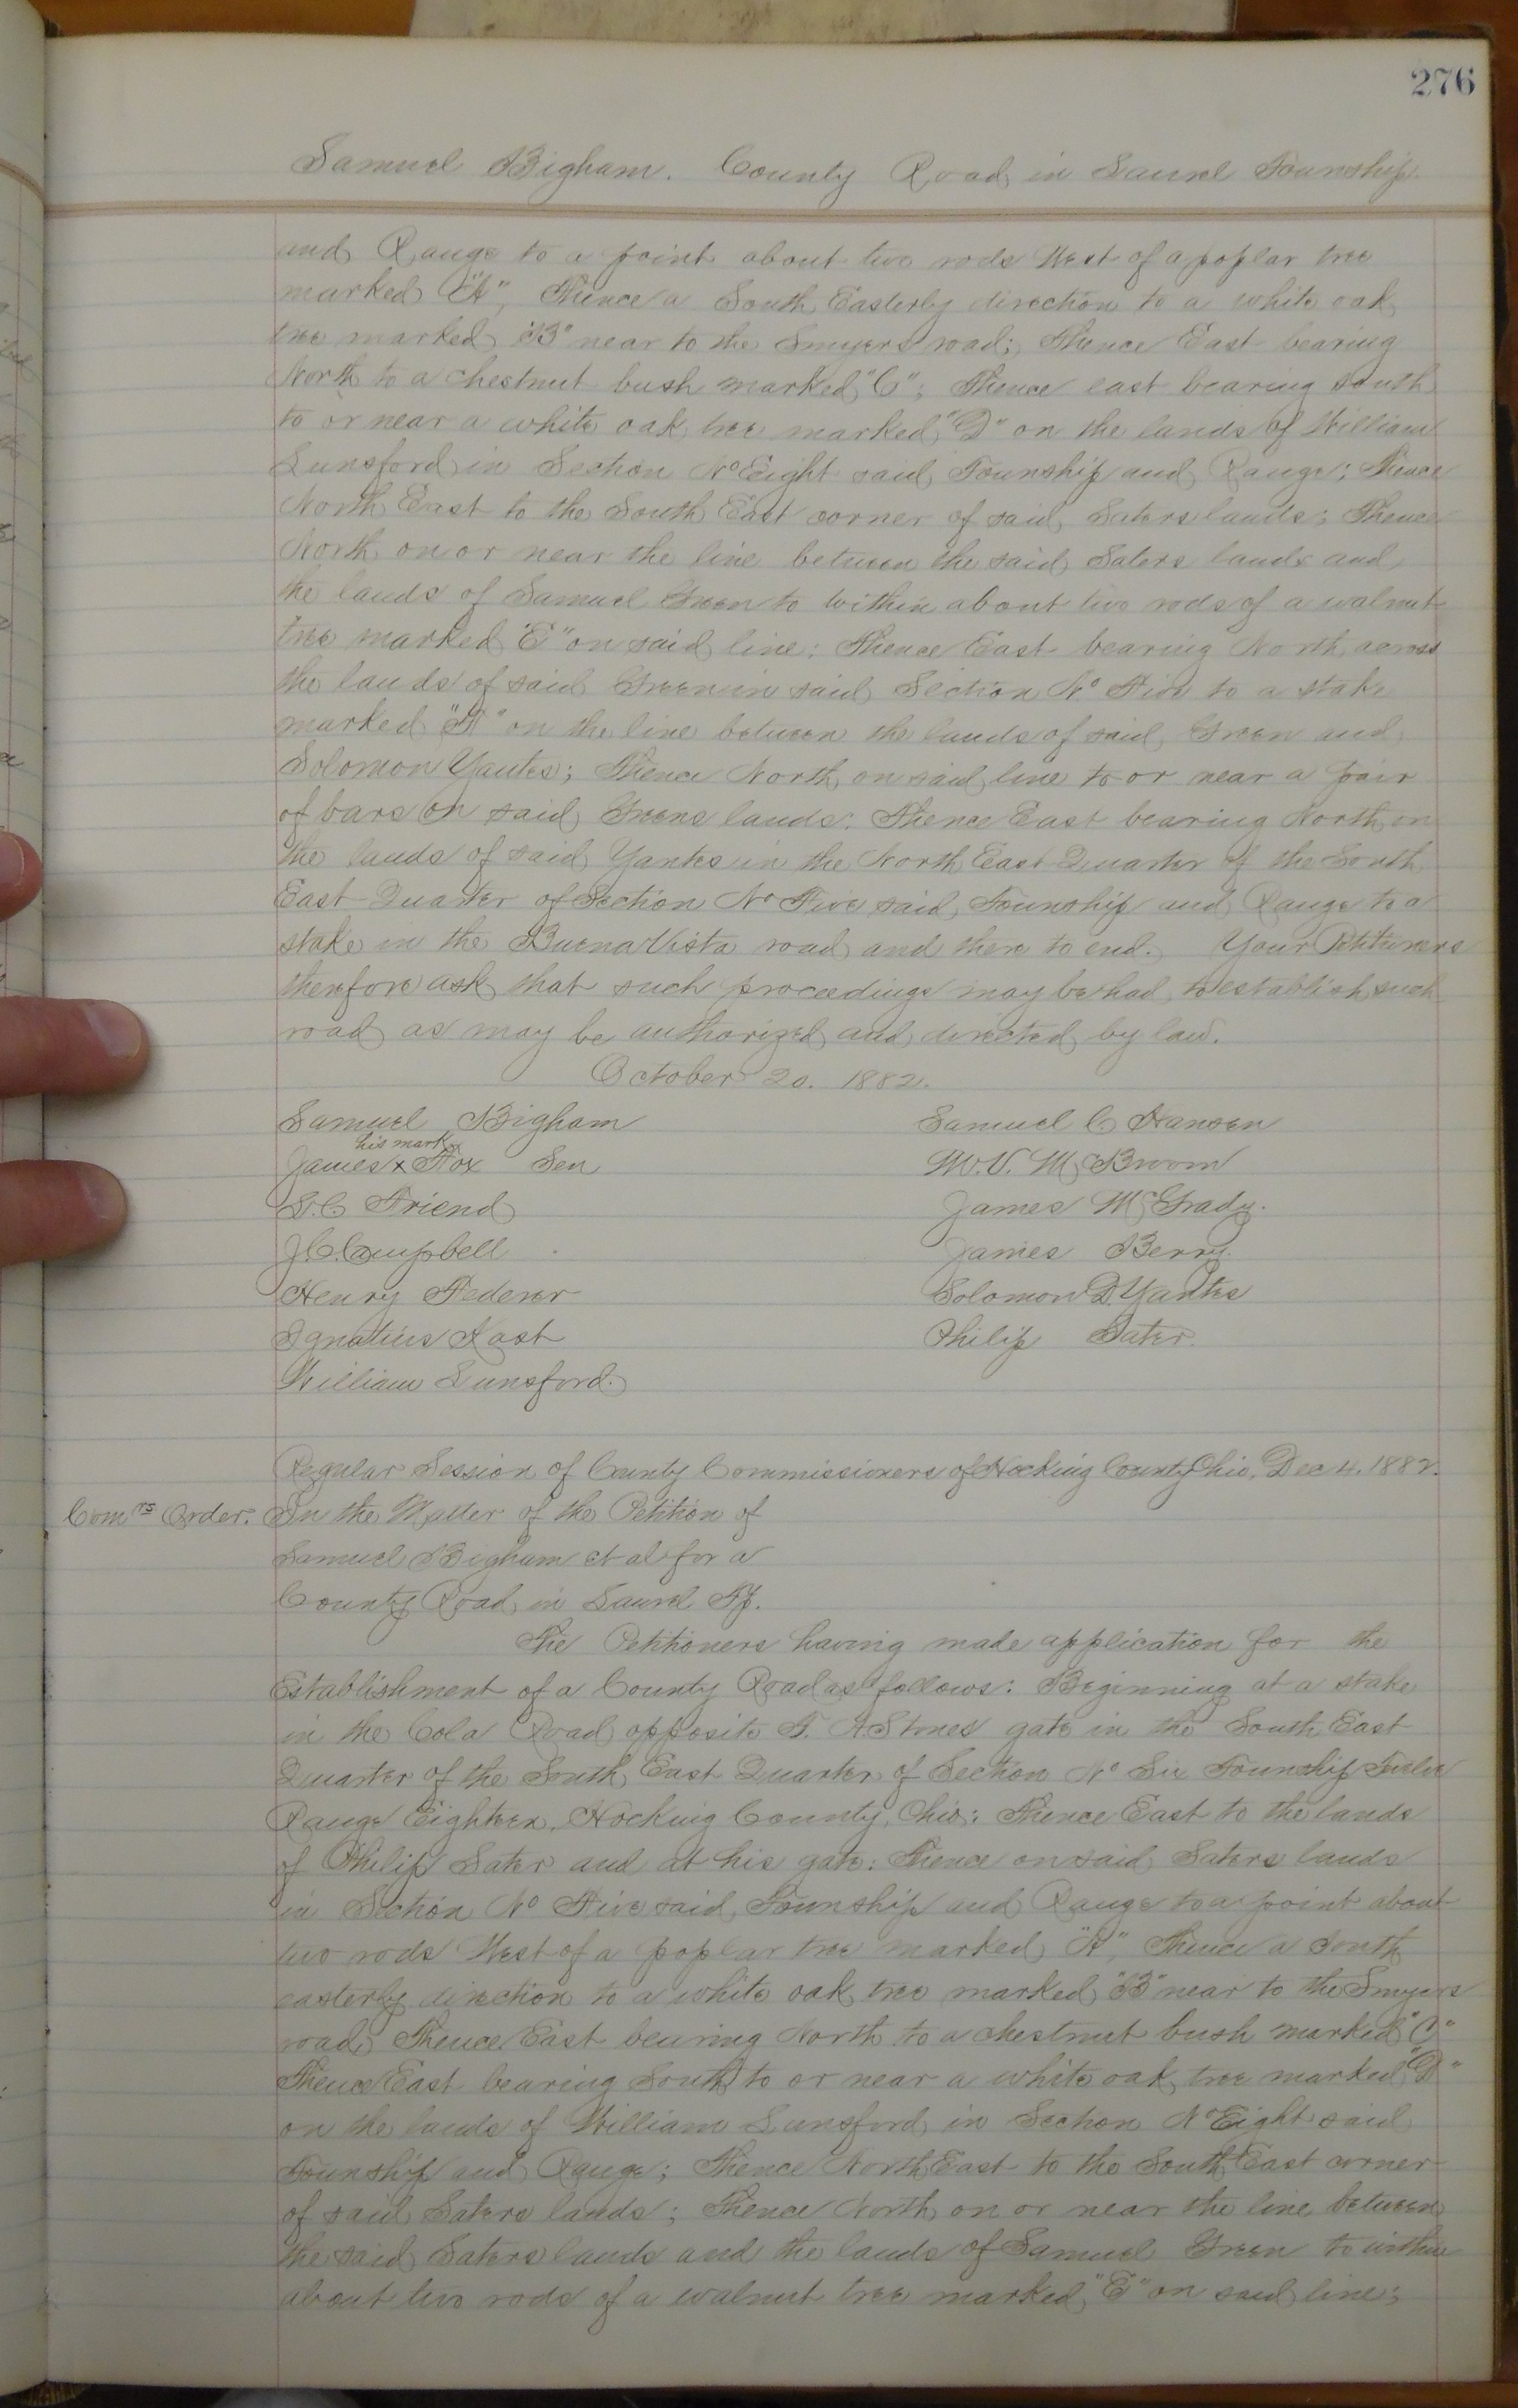 276
Samuel Bigham. County Road in Laurel Township.
and Range to a point about two rods West of a poplar tree
marked "A", Thence a South Easterly direction to a white oak
tree marked "B" near to the Smyers road; Thence East bearing
North to a chestnut bush marked "C"; Thence east bearing south
to or near a white oak tree marked "D" on the lands of William
Lunsford in Section No Eight said Township and Range; Thence
North East to the South East corner of said Saters lands; Thence
North on or near the line between the said Saters lands and
the lands of Samuel Green to within about two rods of a walnut
tree marked "E" on said line; Thence East bearing North across
the lands of said Green in said Section No Five to a stake
marked "F" on the line between the lands of said Green and
Solomon Yantes; Thence North on said line to or near a pair
of bars on said Greens lands; Thence East bearing North on
the lands of said Yantes in the North East Quarter of the South
East Quarter of Section No Five said Township and Range to a
stake in the Buena Vista road and there to end. Your Petitioners
therefore ask that such proceedings may be had to establish such
road as may be authorized and directed by law.
October 20. 1882.
Samuel Bigham Samuel C Hansen
his mark
James x Fox Sen M.V. McBroom
S.C Friend James McGrady.
J.C. Campbell James Berry.
Henry Federer Solomon D. Yantes
Ignatius Kast Philip Sater.
William Lunsford.
Regular Session of County Commissioners of Hocking County Ohio. Dec 4. 1882.
Comrs Order. In the Matter of the Petition of
Samuel Bigham et al for a
County Road in Laurel Tp.
The Petitioners having made application for the
Establishment of a County Road as follows: Beginning at a stake
in the Cola Road opposite F. A. Stones gate in the South East
Quarter of the South East Quarter of Section No Six Township Twelve
Range Eighteen, Hocking County, Ohio; Thence East to the lands
of Philip Sater and at his gate; Thence on said Saters lands
in Section No Five said Township and Range to a point about
two rods West of a poplar tree marked "A", Thence a South
easterly direction to a white oak tree marked "B" near to the Smyers
road; Thence East bearing North to a chestnut bush marked "C"
Thence East bearing South to or near a white oak tree marked "D"
on the lands of William Lunsford in Section No Eight said
Township and Range; Thence North East to the South East corner
of said Saters lands; Thence North on or near the line between
the said Saters lands and the lands of Samuel Green to within
about two rods of a walnut tree marked "E" on said line;